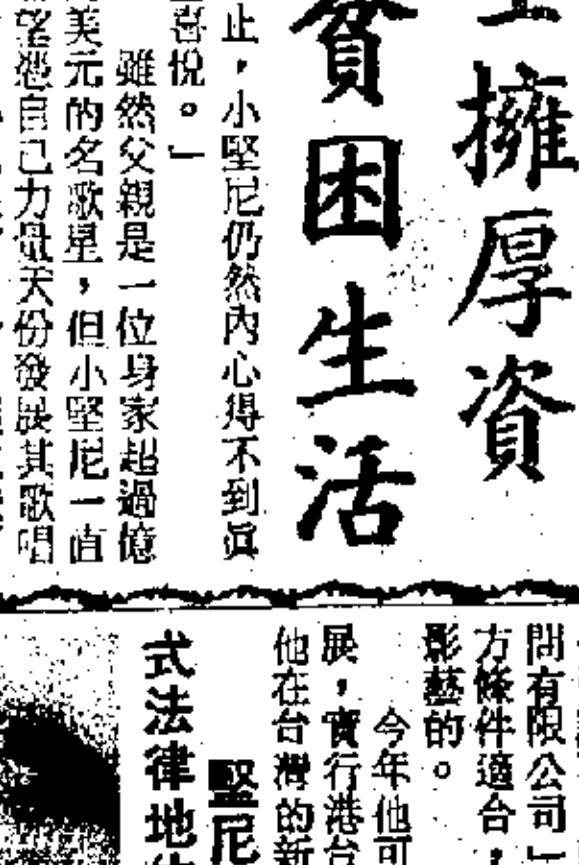 擁厚資
貧困生活
止，小堅尼仍然內心得不到眞
喜悅。」
雖然父親是一位身家超過億
美元的名歌星，但小堅尼一直
望憑自己力量天份發展其歌唱
問有限公司」
方條件適合，
影藝的。
今年他可
展，實行港台
他在台灣的新
堅尼
式法律地